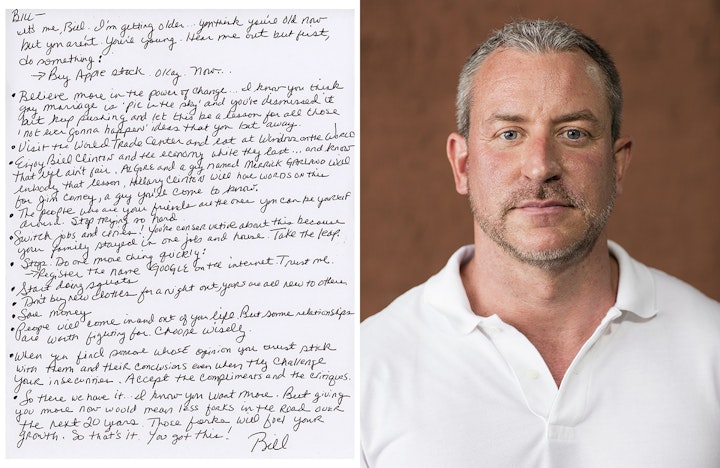 BILL—
it's me, Bill. I'm getting older... you think you're old now
but you aren't. You're young. Hear me out but first,
do something:
→ Buy Apple stock. Okay. Now...
• Believe more in the power of change... I know you think
gay marriage is 'pie in the sky' and you've dismissed it
but keep pushing and let this be a lesson for all those
'not ever gonna happen' ideas that you bat away.
• Visit the World Trade Center and eat at Windows on the World
• Enjoy Bill Clinton and the economy while they last... and know
that life ain't fair. Al Gore and a guy named Merrick Garland will
embody that lesson, Hillary Clinton will have words on this
for Jim Comey, a guy you'll come to know.
• The people who are your friends are the ones you can be yourself
around. Stop trying so hard.
• Switch jobs and cities! You're conservative about this because
your family stayed in one job and house. Take the leap.
• Stop. Do one more thing quickly:
→ Register the name GOOGLE on the internet. Trust me.
• Start doing squats
• Don't buy new clothes for a night out. Yours are all new to others
• Save money
• People will come in and out of your life. But some relationships
are worth fighting for. Choose wisely.
• When you find someone whose opinion you trust stick
with them and their conclusions even when they challenge
your insecurities. Accept the compliments and the critiques.
• So there we have it. I know you want more. But giving
you more now would mean less forks in the road over
the next 20 years. Those forks will fuel your
growth. So that's it. You got this!
Bill